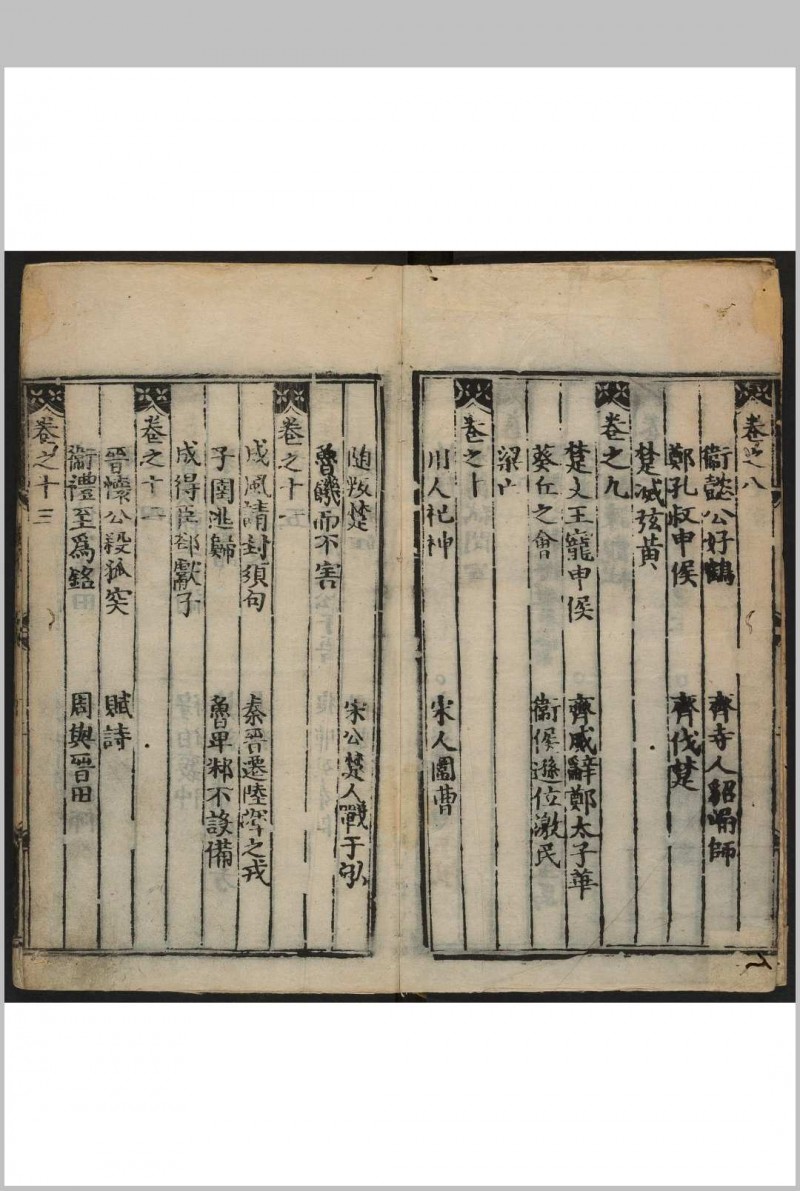 卷之八
衞懿公好鶴 齊寺人貂漏師
鄭孔叔申侯 齊伐楚
楚滅弦黃
卷之九
楚文王寵申侯 齊威辭鄭太子華
葵丘之會 衞侯遜位激民
梁亡
卷之十
用人祀神 宋人圍曹
隨叛楚 宋公楚人戰于泓
魯饑而不害
卷之十一
成風請封須句 秦晉遷陸渾之戎
子圉逃歸 魯卑邾不設備
成得臣郤獻子
卷之十二
晉懷公殺狐突 賦詩
衞禮至爲銘 周與晉田
卷之十三